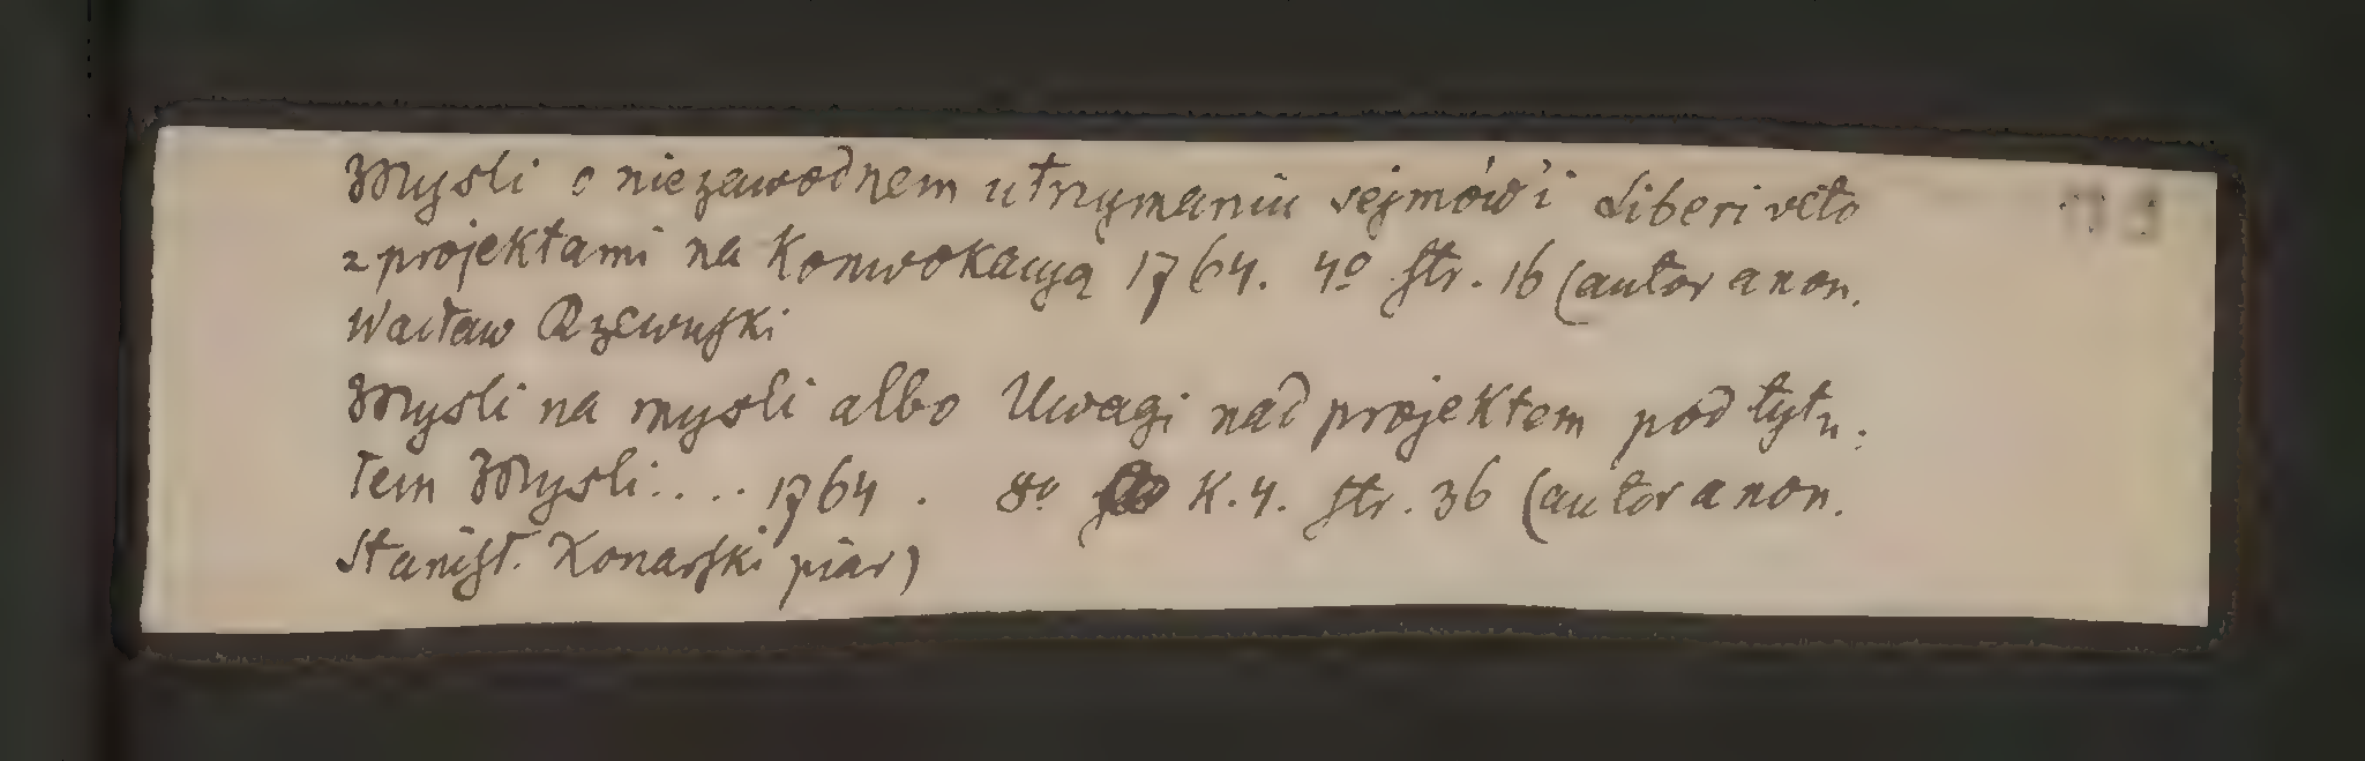 Mysli o niezawodnem utrzymaniu sejmów i Liberi veto
z projektami na Konwokacyą 1764. 4o str. 16 (autor anon.
Wacław Rzewuski
Mysli na mysli albo Uwagi nad projektem pod tytu:
łem Mysli.... 1764. 8o K. 4. str. 36 (autor anon.
Stanisł. Konarski piar)